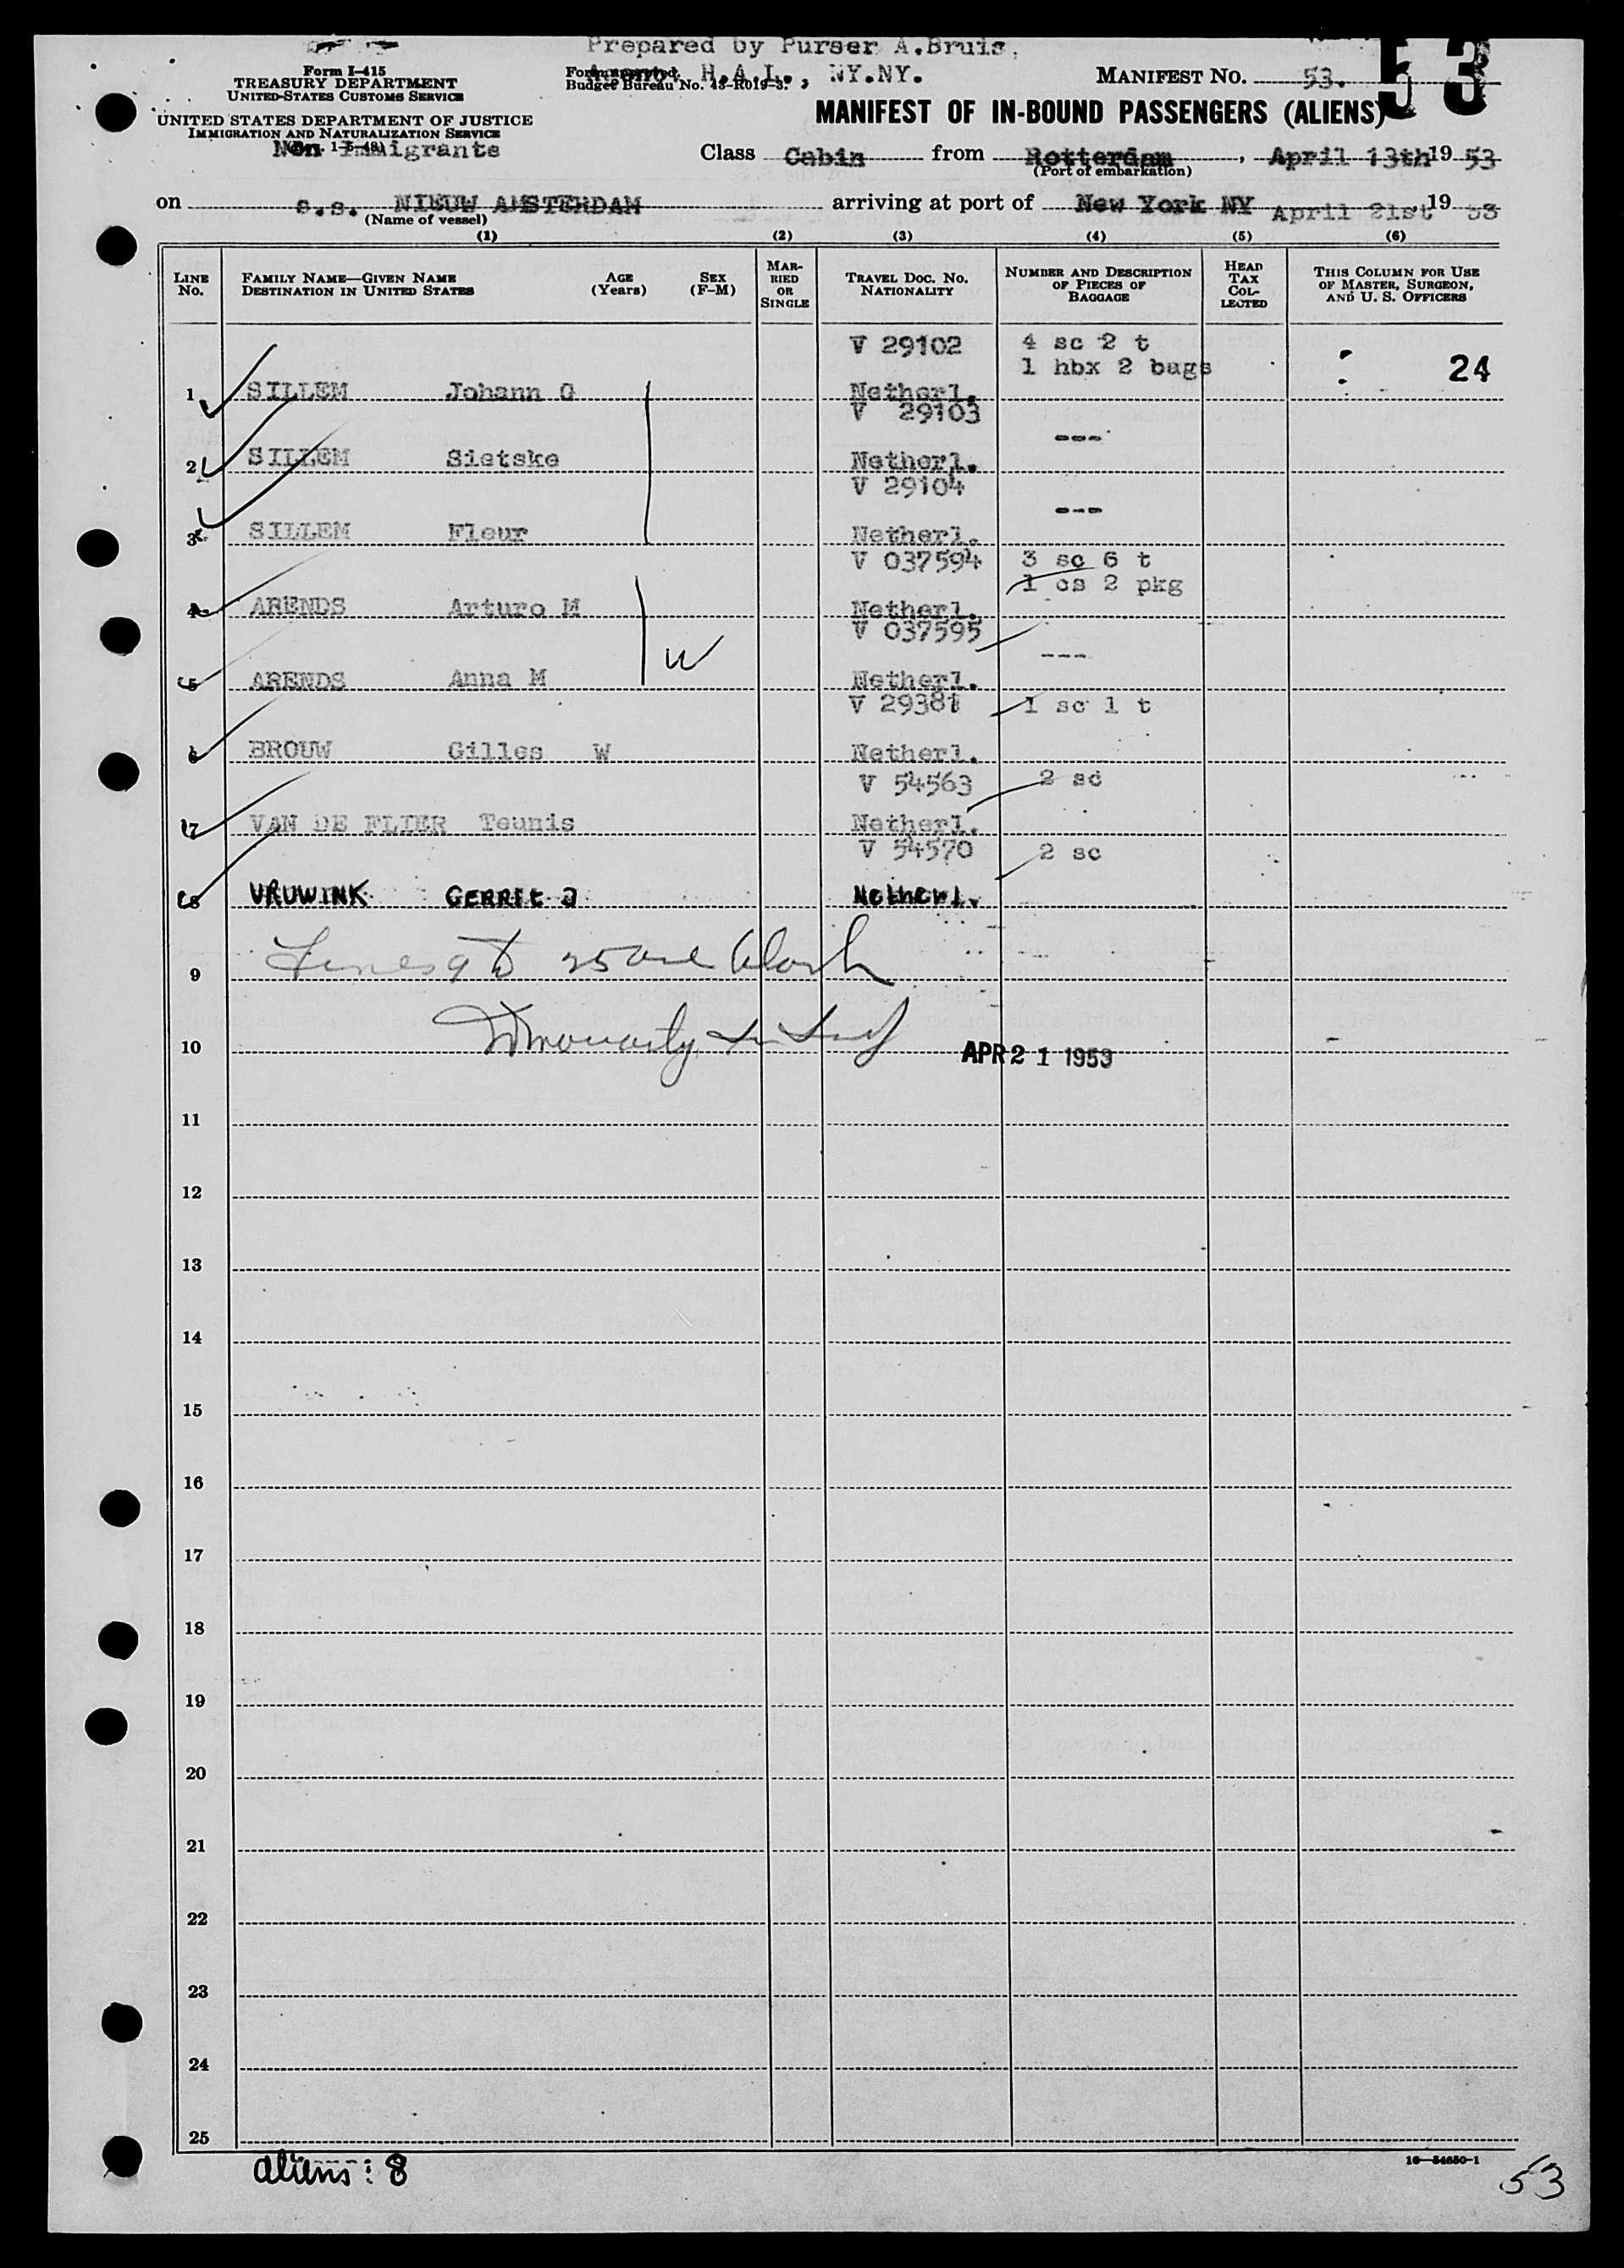 Prepared by Purser A.Bruis,
H.A.L., NY.NY.
Form I-415
TREASURY DEPARTMENT
UNITED STATES CUSTOMS SERVICE
UNITED STATES DEPARTMENT OF JUSTICE
IMMIGRATION AND NATURALIZATION SERVICE
Non Immigrants
Budget Bureau No. 43-R019-3.
MANIFEST NO. 53.
53
MANIFEST OF IN-BOUND PASSENGERS (ALIENS)
Class Cabin from Rotterdam, April 13th 19 53
(Port of embarkation)
on s.s. NIEUW AMSTERDAM arriving at port of New York NY April 21st 19 53
(Name of vessel)
(1) (2) (3) (4) (5) (6)
LINE No.
FAMILY NAME—GIVEN NAME
DESTINATION IN UNITED STATES
AGE (Years)
SEX (F-M)
MAR-RIED OR SINGLE
TRAVEL DOC. NO. NATIONALITY
NUMBER AND DESCRIPTION OF PIECES OF BAGGAGE
HEAD TAX COL-LECTED
THIS COLUMN FOR USE OF MASTER, SURGEON, AND U. S. OFFICERS
V 29102 4 sc 2 t
1 hbx 2 bags 24
1 SILLEM Johann G Netherl.
V 29103 ---
2 SILLEM Sietske Netherl.
V 29104 ---
3 SILLEM Fleur Netherl.
V 037594 3 sc 6 t
1 cs 2 pkg
4 ARENDS Arturo M Netherl.
V 037595 ---
W
5 ARENDS Anna M Netherl.
V 29381 1 sc 1 t
6 BROUW Gilles W Netherl.
V 54563 2 sc
7 VAN DE FLIER Teunis Netherl.
V 54570 2 sc
8 VRUWINK GERRIt J Netherl.
9
10 APR 21 1953
11
12
13
14
15
16
17
18
19
20
21
22
23
24
25
aliens: 8
16—54650-1
53